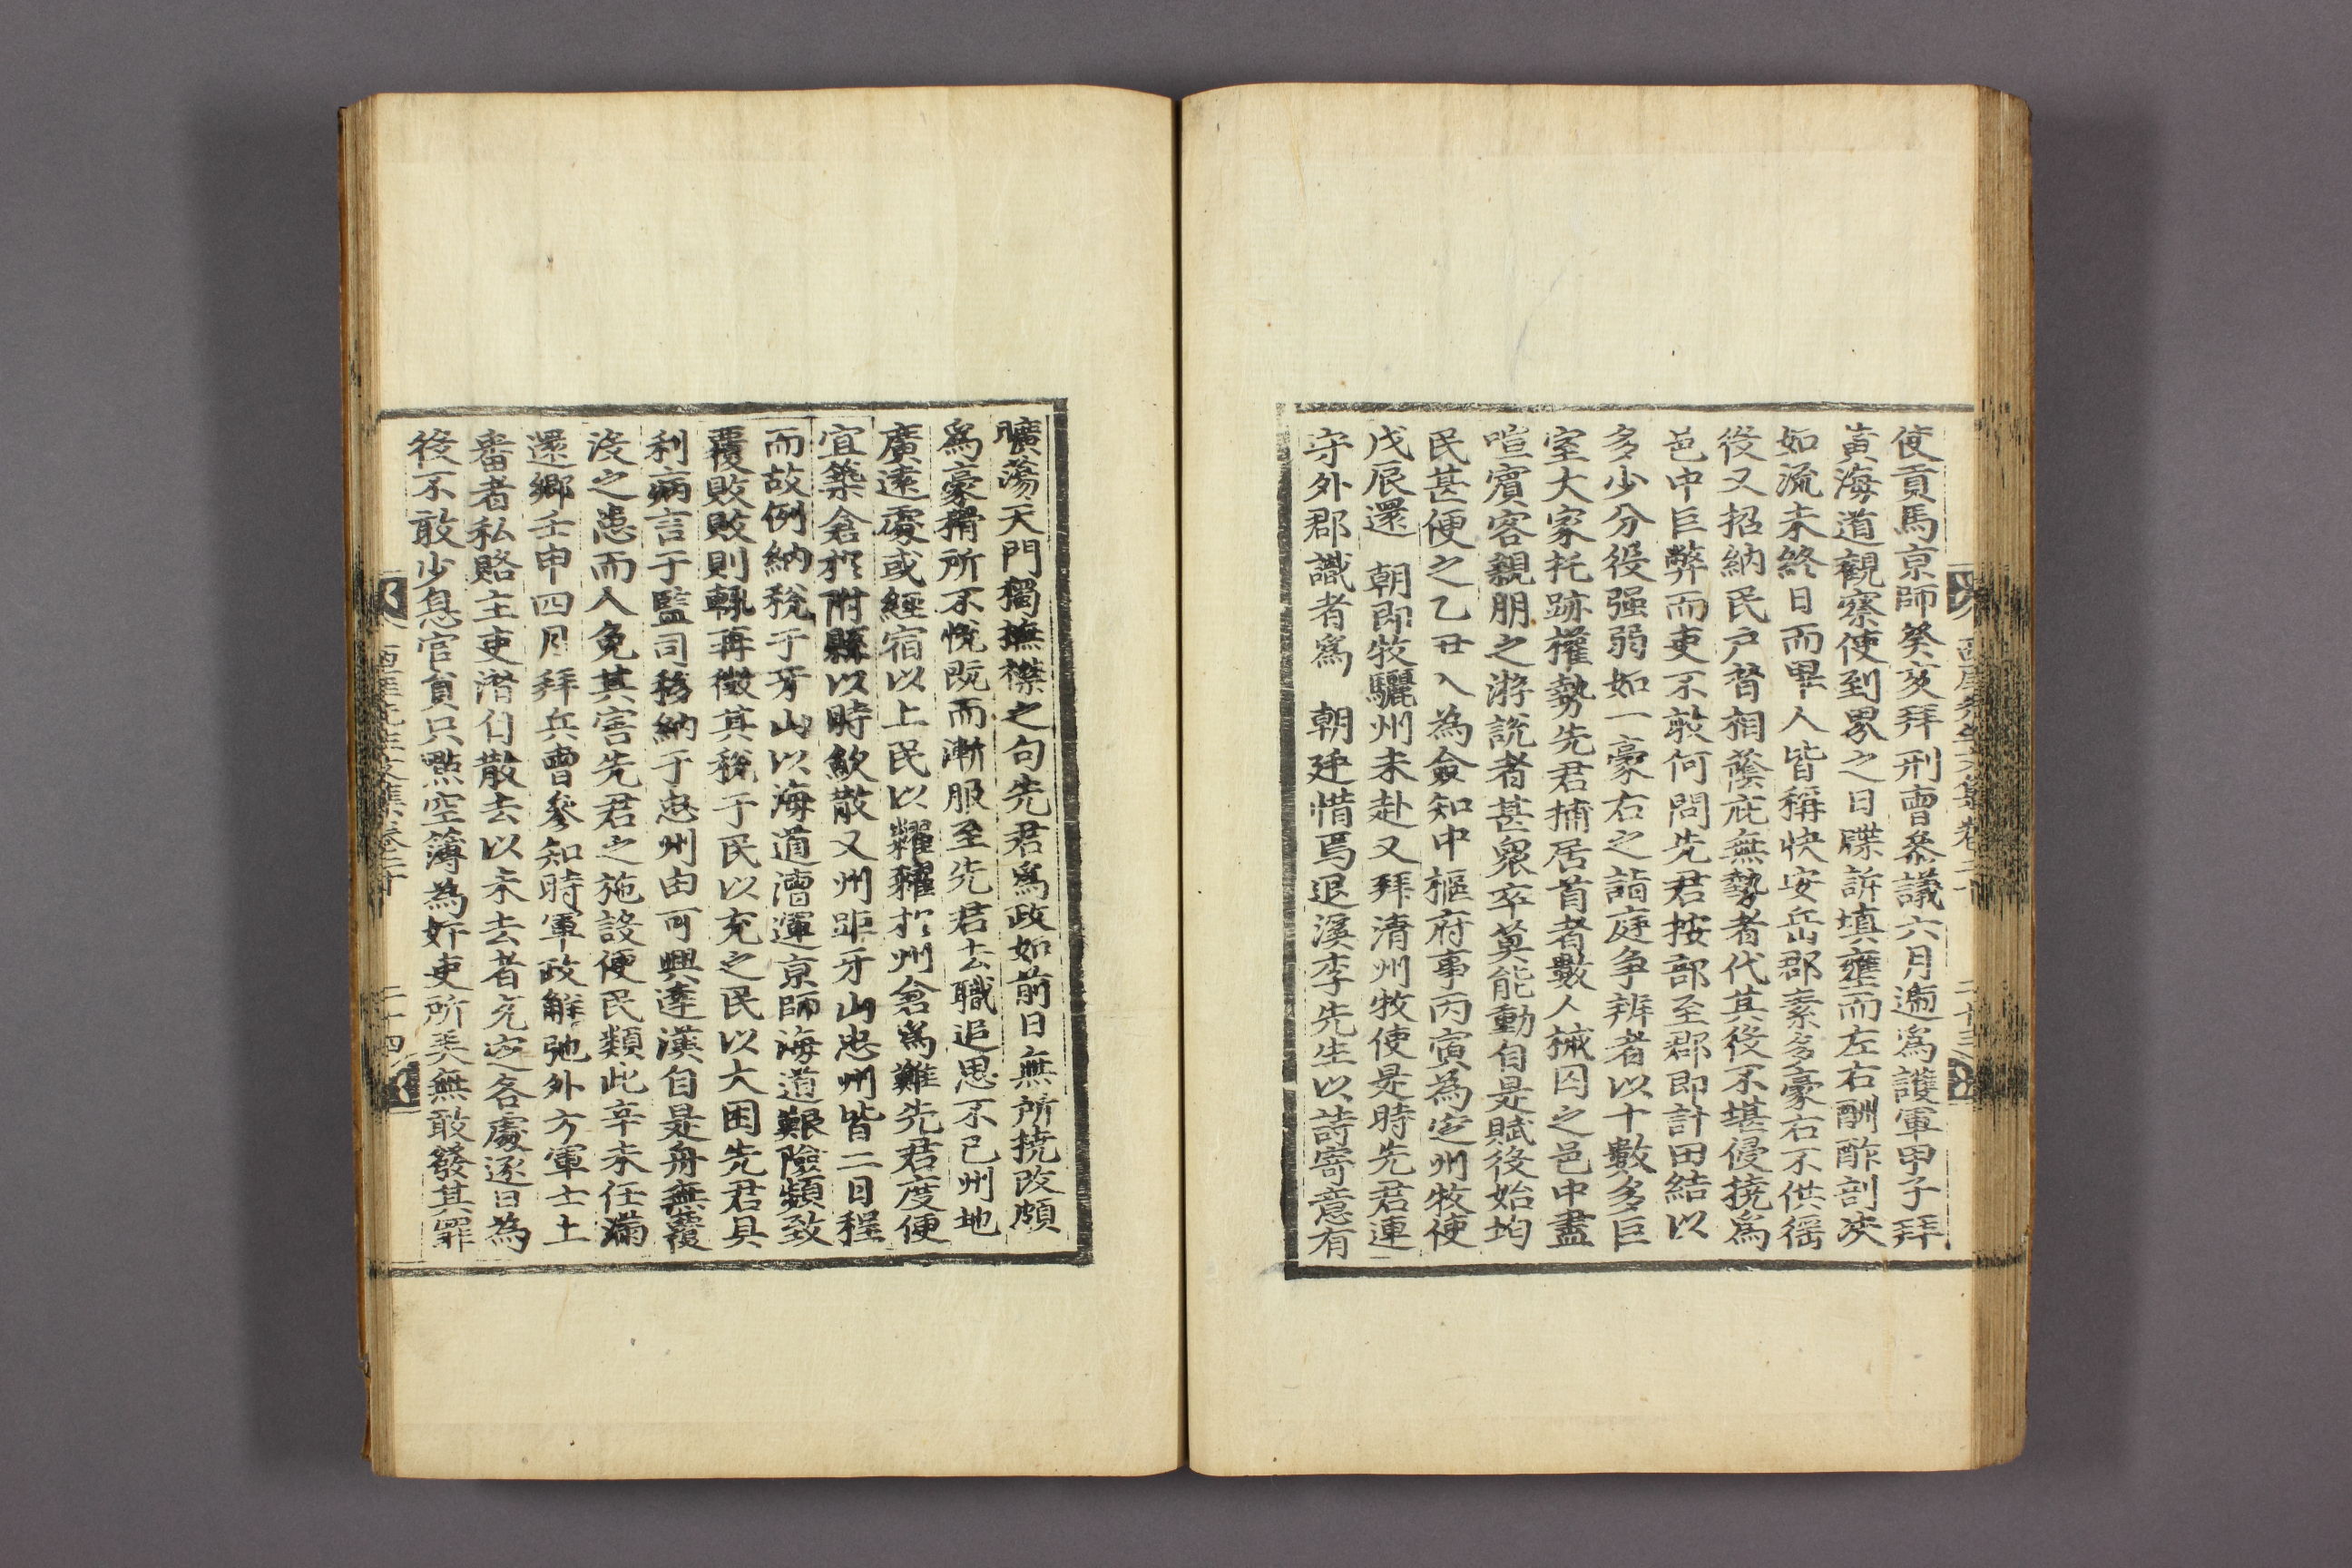 西厓先生文集卷二十
二十三
使貢馬京師癸亥拜刑曹叅議六月遞爲護軍甲子拜
黃海道觀察使到界之日牒訴塡壅而左右酬酢剖决
如流未終日而畢人皆稱快安岳郡素多豪右不供徭
役又招納民戶替相蔭庇無勢者代其役不堪侵撓爲
邑中巨弊而吏不敢何問先君按部至郡即計田結以
多少分役强弱如一豪右之詣庭爭辨者以十數多巨
室大家托跡權勢先君捕居首者數人械囚之邑中盡
喧賓客親朋之游說者甚衆卒莫能動自是賦役始均
民甚便之乙丑入為僉知中樞府事丙寅為定州牧使
戊辰還 朝即牧驪州未赴又拜清州牧使是時先君連
守外郡識者爲 朝廷惜焉退溪李先生以詩寄意有
曠蕩天門獨撫襟之句先君爲政如前日無所撓改頗
爲豪猾所不悅既而漸服至先君去職追思不已州地
廣遠處或經宿以上民以糶糴於州倉爲難先君度便
宜築倉於附縣以時歛散又州距牙山忠州皆二日程
而故例納稅于牙山以海道漕運京師海道艱險頻致
覆敗敗則輒再徵其稅于民以充之民以大困先君具
利病言于監司移納于忠州由可興達漢自是舟無覆
沒之患而人免其害先君之施設便民類此辛未任滿
還鄉壬申四月拜兵曹參知時軍政解弛外方軍士上
番者私賂主吏潛自散去以未去者充定各處逐日為
役不敢少息官負只點空簿為奸吏所羙無敢發其罪
西厓先生文集卷二十
二十四